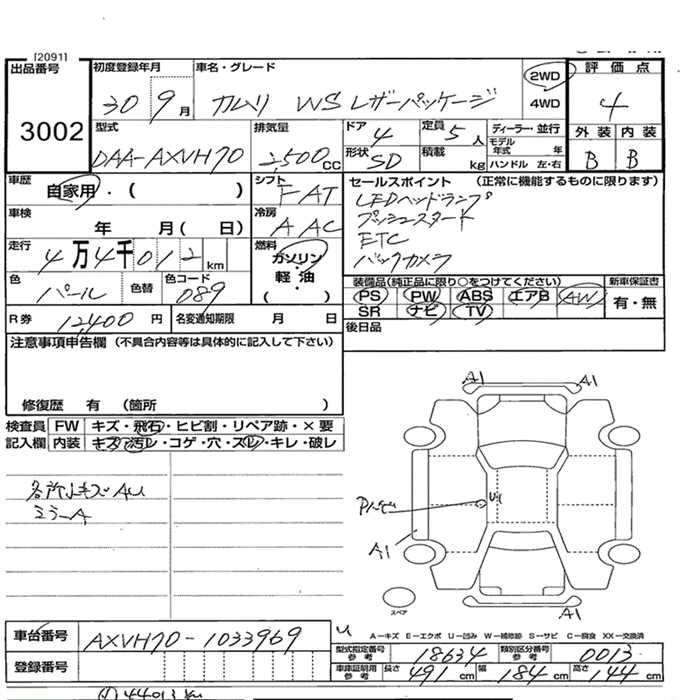 [2091]
出品番号 初度登録年月 車名・グレード 2WD 4WD 評価点
3002 30 9月 カムリ WSレザーパッケージ 4
型式 排気量 ドア 4 定員 5人 ディーラー・並行 外装 内装
DAA-AXVH70 2,500cc 形状 SD 積載 kg モデル年式 年 ハンドル 左・右 B B
車歴 自家用・( ) シフト FAT
セールスポイント (正常に機能するものに限ります)
LEDヘッドランプ
プッシュスタート
ETC
バックカメラ
車検 年 月( 日) 冷房 AAC
走行 4万4千012km 燃料 ガソリン・軽油・( )
色 パール 色替 色コード 089
装備品(純正品に限り○をつけてください) 新車保証書
PS PW ABS エアB AW 有・無
SR ナビ TV
R券 12,400円 名変通知期限 月 日
後日品
注意事項申告欄 (不具合内容等は具体的に記入して下さい)
修復歴 有 (箇所 )
検査員記入欄 FW キズ・飛石・ヒビ割・リペア跡・×要
内装 キズ・汚レ・コゲ・穴・スレ・キレ・破レ
各所小キズAU
ミラーA
A1 A1
U1
A1
A1
スペア
A-キズ E-エクボ U-凹み W-補修跡 S-サビ C-腐食 XX-交換済
車台番号 AXVH70-1033969
登録番号
型式指定番号 参考 18634 類別区分番号 参考 0013
車庫証明用 参考 長さ 491cm 幅 184cm 高さ 144cm
44013km